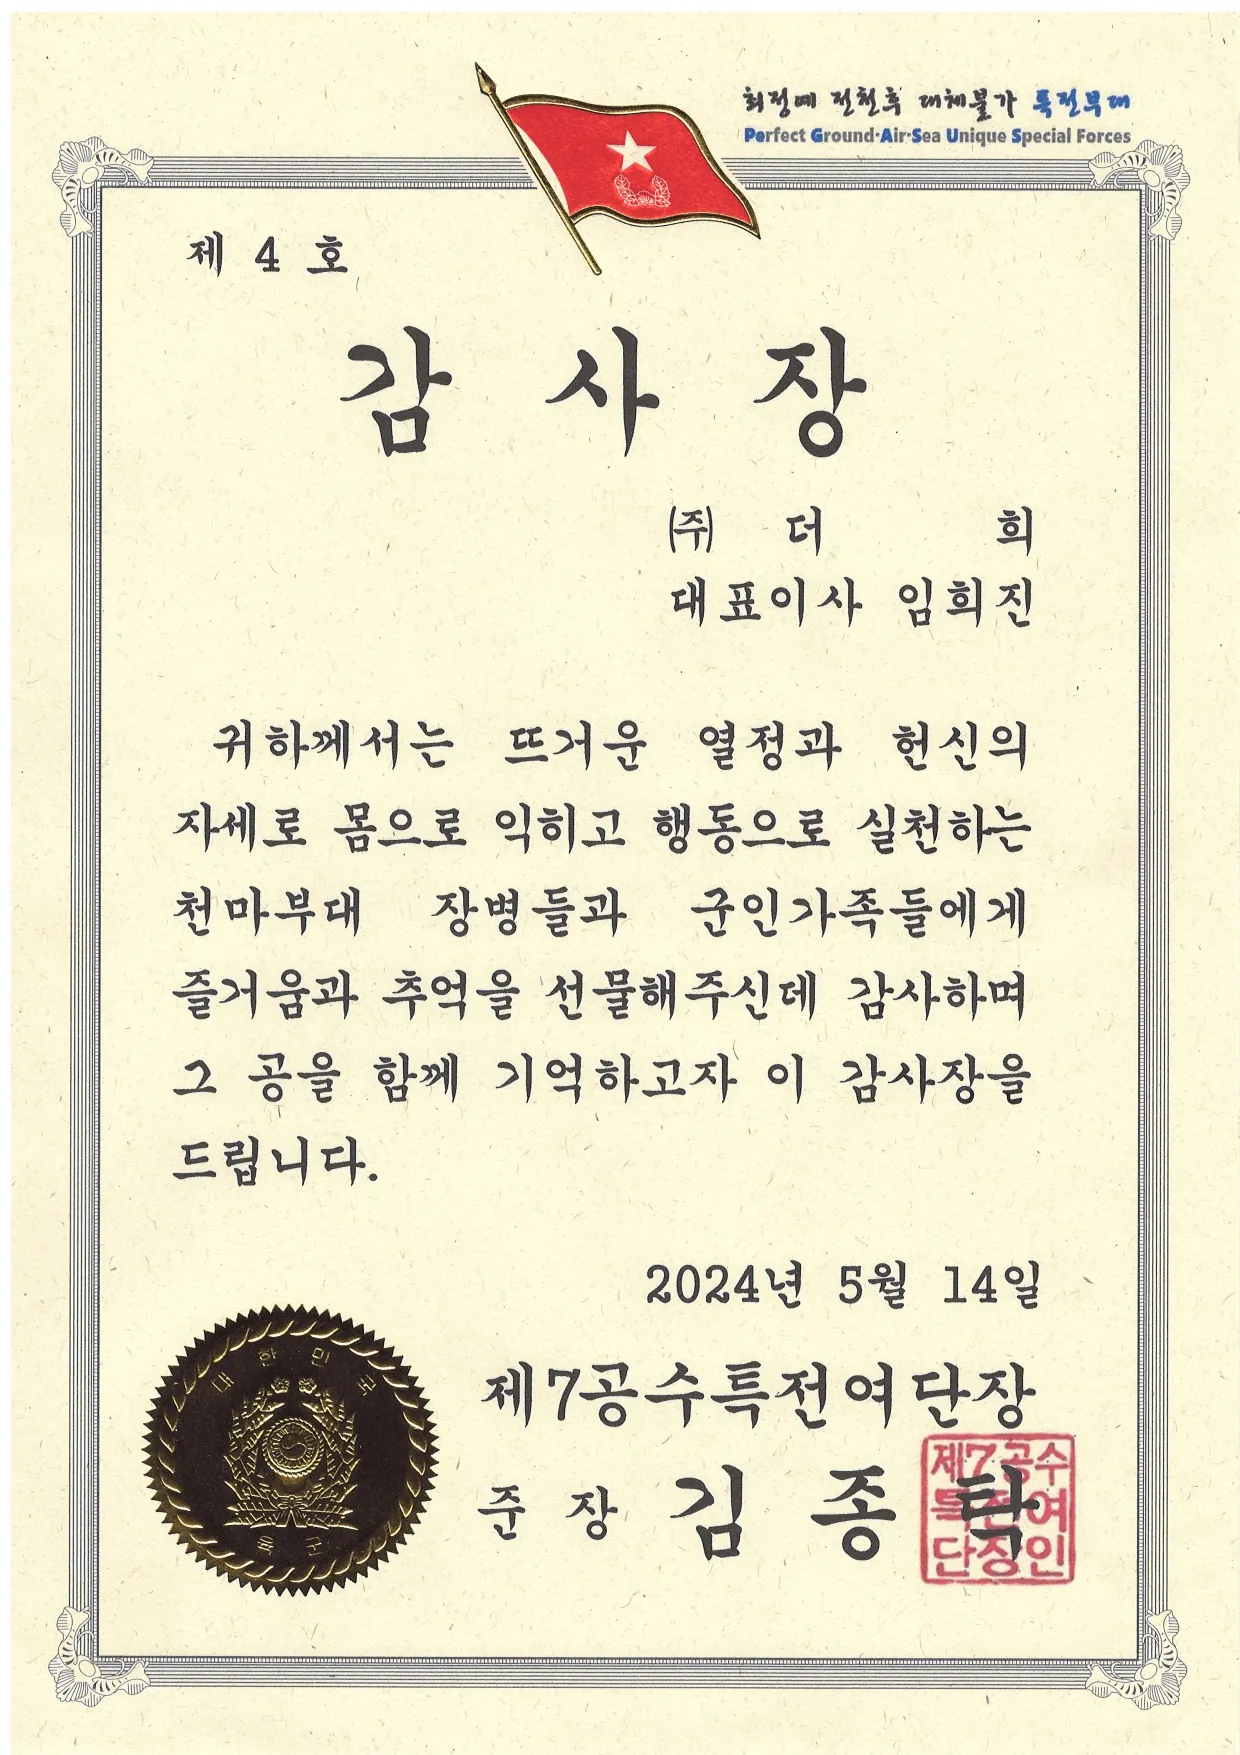 최정예 전천후 대체불가 특전부대
Perfect Ground·Air·Sea Unique Special Forces
제 4 호
감 사 장
㈜ 더 희
대표이사 임희진
귀하께서는 뜨거운 열정과 헌신의
자세로 몸으로 익히고 행동으로 실천하는
천마부대 장병들과 군인가족들에게
즐거움과 추억을 선물해주신데 감사하며
그 공을 함께 기억하고자 이 감사장을
드립니다.
2024년 5월 14일
제7공수특전여단장
준 장 김 종 탁
제7공수
특전여
단장인
대한민국
육군